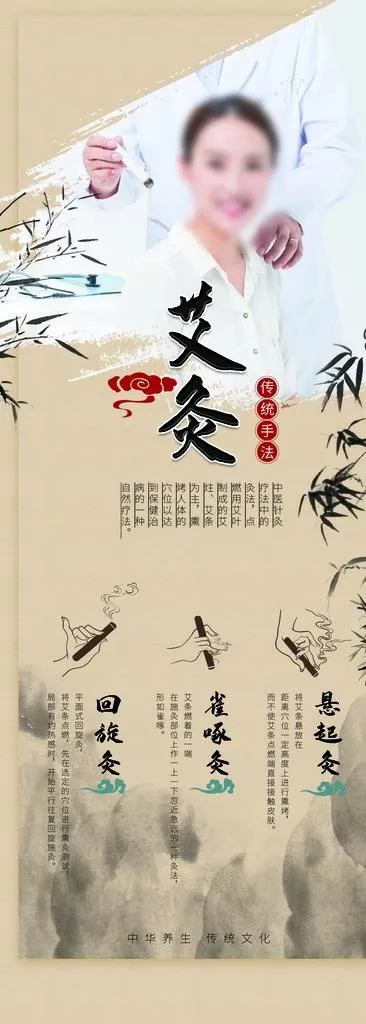 艾灸
传统手法
中医针灸
疗法中的
灸法，点
燃用艾叶
制成的艾
炷、艾条
为主，熏
烤人体的
穴位以达
到保健治
病的一种
自然疗法。
悬起灸
将艾条悬放在
距离穴位一定高度上进行熏烤，
而不使艾条点燃端直接接触皮肤。
雀啄灸
艾条燃着的一端
在施灸部位上作一上一下忽近忽远的一种灸法，
形如雀啄。
回旋灸
平面式回旋灸，
将艾条点燃，先在选定的穴位进行熏灸测试，
局部有灼热感时，开始平行往复回旋施灸。
中华养生 传统文化